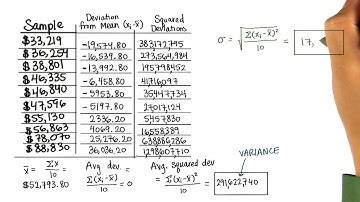 Sample Deviation from Mean (xᵢ-x̄) Squared Deviations
$33,219 -19,574.80 383,172,795
$36,254 -16,539.80 273,564,984
$38,801 -13,992.80 195,798,452
$46,335 -6,458.80 41,716,097
$46,840 -5953.80 35,447,734
$47,596 -5197.80 27,017,124
$55,130 2336.20 5,457,830
$56,863 4069.20 16,558,389
$78,070 25,276.20 638,886,286
$88,830 36,036.20 1,298,607,710
x̄ = Σx/10 Avg. dev. Avg. squared dev
$52,793.80 = Σ(xᵢ-x̄)/10 = 0 = Σ(xᵢ-x̄)²/10 = 291,622,740
VARIANCE
σ = √Σ(xᵢ-x̄)²/10 = 17,